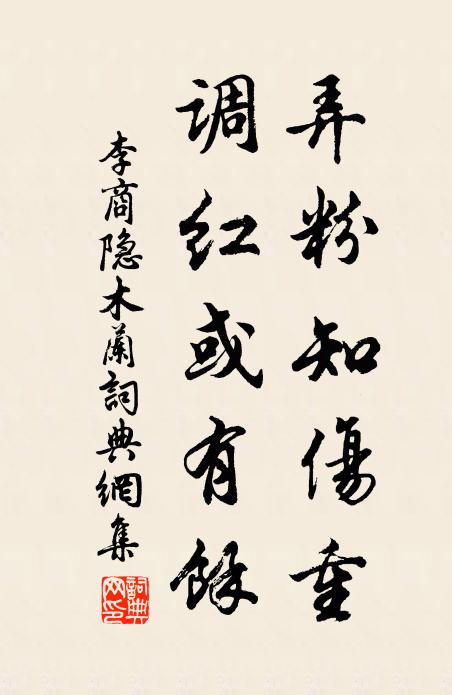 弄粉知傷重
調紅或有餘
李商隐木蘭詞典網集
詞典网印